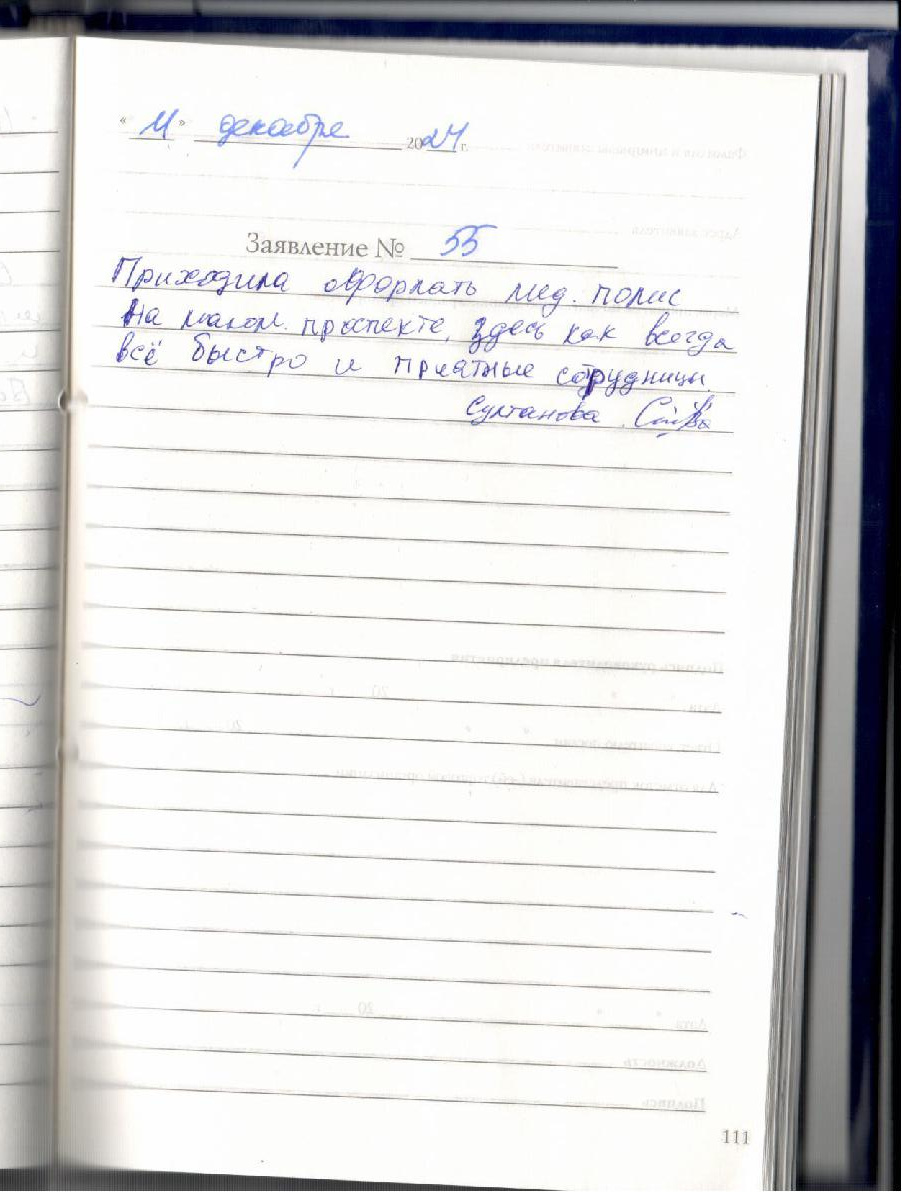 "11" декабря 2024 г.
Заявление № 55
Приходила оформлать мед. полис
на малом. проспекте, здесь как всегда
всё быстро и приятные сотрудницы.
Султанова
111